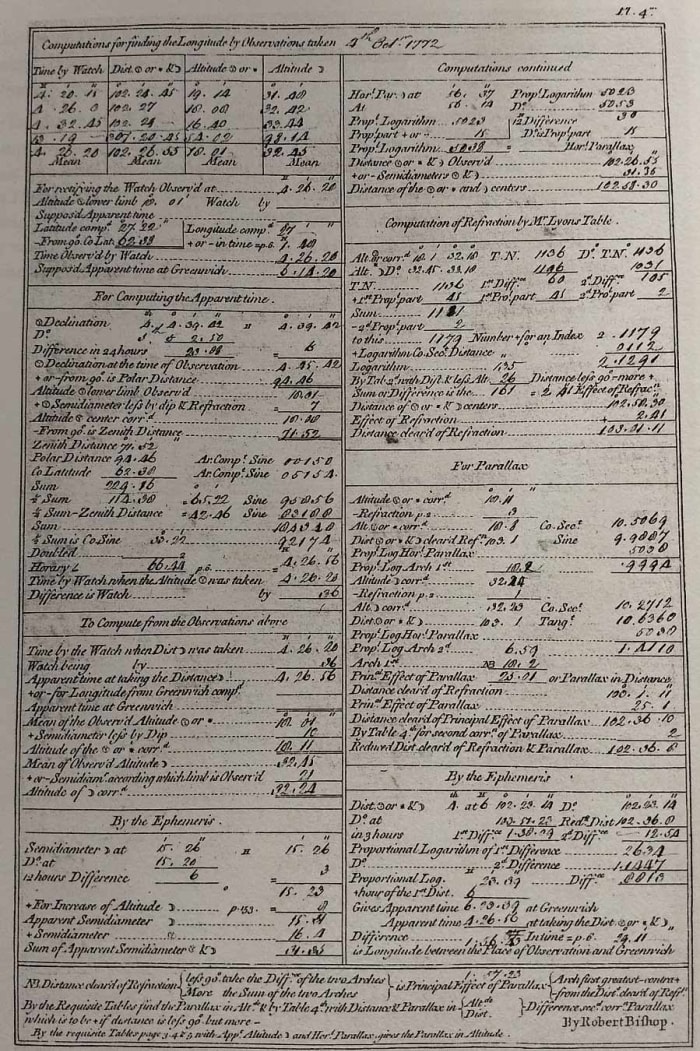 17. 4
Computations for finding the Longitude by Observations taken 4th Octr. 1772
Time by Watch Dist. ☉ or * & ☽ Altitude ☉ or * Altitude ☽
4. 20. 15 102. 24. 45 19. 14 31. 40
4. 26. 0 102. 27 18. 08 32. 42
4. 32. 45 16. 40 33. 44
13. 19 307. 20. 45 54. 02 98. 14
4. 26. 20 102. 26. 55 18. 01 32. 45
Mean Mean Mean Mean
For rectifying the Watch Observ'd at 4. 26. 20
Altitude ☉ lower limb 18. 01' Watch by
Suppos'd Apparent time
Latitude comp. 27. 22 Longitude compt.
From 90°. Co Lat. 62. 38 + or - in time = p. 6. 7. 48
Time Observ'd by Watch 4. 26. 20
Suppos'd Apparent time at Greenwich 6. 14. 20
For Computing the Apparent time.
☉ Declination 4. 4. 39. 42 = 4. 39. 42
Do. 5
Difference in 24 hours = 6
☉ Declination at the time of Observation 4. 45. 42
+ or - from 90°. is Polar Distance 94. 46
Altitude ☉ lower limb Observ'd 18. 01
+ ☉ Semidiameter less by dip & Refraction 7
Altitude ☉ center corrd. 18. 08
- From 90°. is Zenith Distance 71. 52
Zenith Distance 71. 52
Polar Distance 94. 46 Ar. Comp. Sine 00150
Co Latitude 62. 38 Ar. Comp. Sine 05154
Sum 229. 16
½ Sum 114. 38 = 65. 22 Sine 95856
½ Sum - Zenith Distance = 42. 46 Sine 83188
Sum 184348
½ Sum is Co Sine 33. 22 92174
Doubled 2
Horary ∠ 66. 44 p. 6. = 4. 26. 56
Time by Watch when the Altitude ☉ was taken 4. 26. 20
Difference is Watch by 36
To Compute from the Observations above
Time by the Watch when Dist ☽ was taken 4. 26. 20
Watch being by 36
Apparent time at taking the Distance ☽ 4. 26. 56
+ or - for Longitude from Greenwich compt.
Apparent time at Greenwich
Mean of the Observ'd Altitude ☉ or * 18. 01
+ Semidiameter less by Dip 10
Altitude of the ☉ or * corrd. 18. 11
Mean of Observ'd Altitude ☽ 32. 45
+ or - Semidiamr. according which limb is Observ'd 21
Altitude of ☽ corrd. 32. 24
By the Ephemeris.
Semidiameter ☽ at 15. 26 = 15. 26
Do. at 15. 20
12 hours Difference 6 = 3
15. 23
+ For Increase of Altitude ☽ p. 153. 8
Apparent Semidiameter ☽ 15. 31
+ Semidiameter ☉ 16. 4
Sum of Apparent Semidiameter ☉ & ☽ 31. 35
Computations continued
Horl. Par. ☽ at 56. 37 Propl. Logarithm 5023
At 56. 14 Do. 5053
Propl. Logarithm 5023 12 Difference 30
Prop! part + or - 15 Do. is Propl. part 15
Propl. Logarithm 5038 = Horl. Parallax
Distance ☉ or * & ☽ Observ'd 102. 26. 55
+ or - Semidiameters ☉ & ☽ 31. 35
Distance of the ☉ or * and ☽ centers 102. 58. 30
Computation of Refraction by Mr. Lyons Table.
Alt. ☉ corrd. 18. 1 32. 18 T. N. 1136 Do. T. N. 1136
Alt. ☽ Do. 32. 45. 33. 10 1196 1031
T. N. 1136 1st Diffce. 60 2d. Diffce. 105
+ 1st Propl. part 45 1st Pro. part 45 2d. Pro. part 2
Sum 1181
- 2d. Prop! part 2
to this 1179 Number + for an Index 2. 1179
+ Logarithm Co. Sec. Distance 0112
Logarithm 135 2. 1291
By Tab. 2d. with Dist. & less Alt. 26 Distance less 90° - more +
Sum or Difference is the 161 = 2. 41 Effect of Refracn.
Distance of ☉ or * & ☽ centers 102. 58. 30
Effect of Refraction 2. 41
Distance clear'd of Refraction 103. 01. 11
For Parallax
Altitude ☉ or * corrd. 18. 11
- Refraction p. 2 3
Alt. ☉ or * corrd. 18. 8 Co. Sect. 10. 5069
Dist. ☉ or * & ☽ clear'd Refn. 103. 1 Sine 9. 9887
Prop! Log. Horl. Parallax 5038
Prop! Log. Arch 1st 18. 2 . 9994
Altitude ☽ corrd. 32. 24
- Refraction p. 2 1
Alt. ☽ corrd. 32. 23 Co. Sect. 10. 2712
Dist. ☉ or * & ☽ 103. 1 Tangt. 10. 6360
Prop! Log. Horl. Parallax 5038
Prop! Log. Arch 2d. 6. 59 1. 4110
Arch 1st NB 18. 2
Prinl. Effect of Parallax 25. 01 or Parallax in Distance
Distance clear'd of Refraction 103. 1. 11
Prinl. Effect of Parallax 25. 1
Distance clear'd of Principal Effect of Parallax 102. 36. 10
By Table 4th for second corrn. of Parallax 2
Reduced Dist. clear'd of Refraction & Parallax 102. 36. 8
By the Ephemeris
Dist. ☉ or * & ☽ 4. at 6 102. 23. 14 Do. 102. 23. 14
Do. at Redd. Dist 102. 36. 8
in 3 hours 1st Diffce. 2d. Diffce. 12. 54
Proportional Logarithm of 1st Difference 2634
Do. 2d. Difference 1. 1447
Proportional Log. 23. 39 Diffce. 8813
+ hour of the 1st Dist. 6
Gives Apparent time 6. 23. 39 at Greenwich
Apparent time 4. 26. 56 at taking the Dist. ☉ or * & ☽
Difference In time = p. 6. 29. 11
is Longitude between the Place of Observation and Greenwich
NB. Distance clear'd of Refraction { less 90°. take the Diffce. of the two Arches / More the Sum of the two Arches } - is Principal Effect of Parallax { Arch first greatest - contra + / - from the Dist. clear'd of Refn.
By the Requisite Tables find the Parallax in Alt. & by Table 4th with Distance & Parallax in { Altde. / Dist. } Difference is secd. corrn. Parallax
which is to be + if distance is less 90° but more -
By the requisite Tables page 3. 4 & 5. with Appt. Altitude ☽ and Horl. Parallax, gives the Parallax in Altitude.
By Robert Bishop.